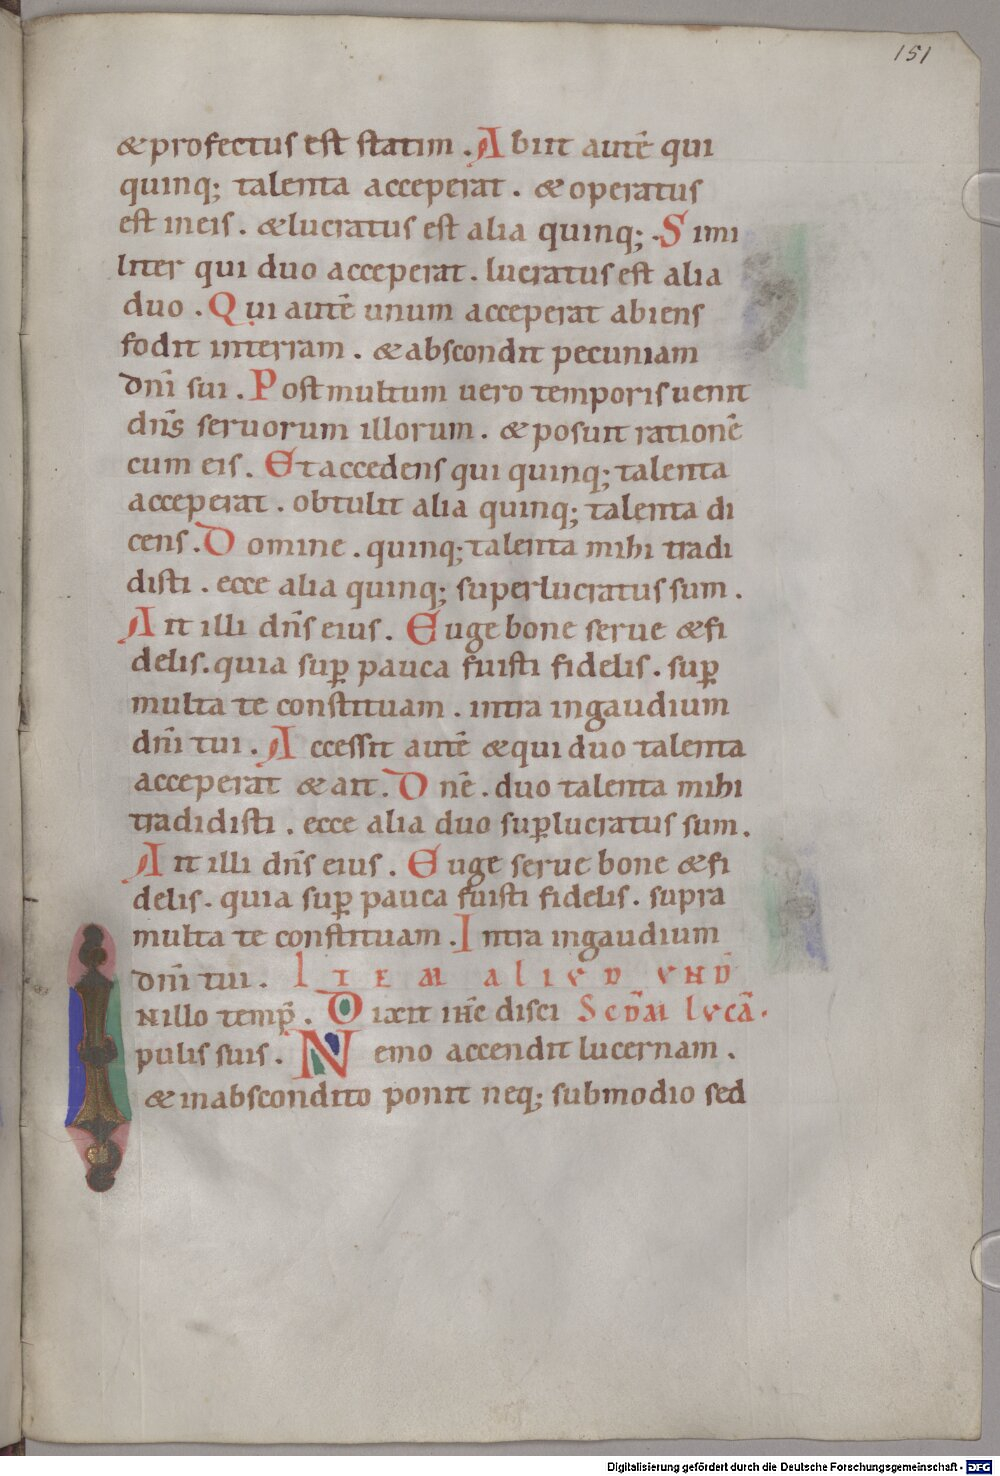 151
& profectus est statim . Abiit autē qui
quinq; talenta acceperat . & operatus
est in eis . & lucratus est alia quinq; . Simi
liter qui duo acceperat . lucratus est alia
duo . Qui autē unum acceperat abiens
fodit in terram . & abscondit pecuniam
dn̄i sui . Post multum uero temporis uenit
dn̄s seruorum illorum . & posuit rationē
cum eis . Et accedens qui quinq; talenta
acceperat . obtulit alia quinq; talenta di
cens . Domine . quinq; talenta mihi tradi
disti . ecce alia quinq; superlucratus sum .
Ait illi dn̄s eius . Euge bone serue & fi
delis . quia sup̄ pauca fuisti fidelis . sup̄
multa te constituam . intra in gaudium
dn̄i tui . Accessit autē & qui duo talenta
acceperat & ait . Dn̄e . duo talenta mihi
tradidisti . ecce alia duo sup̄lucratus sum .
Ait illi dn̄s eius . Euge serue bone & fi
delis . quia sup̄ pauca fuisti fidelis . supra
multa te constituam . Intra in gaudium
dn̄i tui . ITEM ALIUD UND̄
IN illo temp̄ . Dixit ih̄c disci SCD̄M LUCĀ .
pulis suis . Nemo accendit lucernam .
& in abscondito ponit neq; sub modio sed
Digitalisierung gefördert durch die Deutsche Forschungsgemeinschaft - DFG